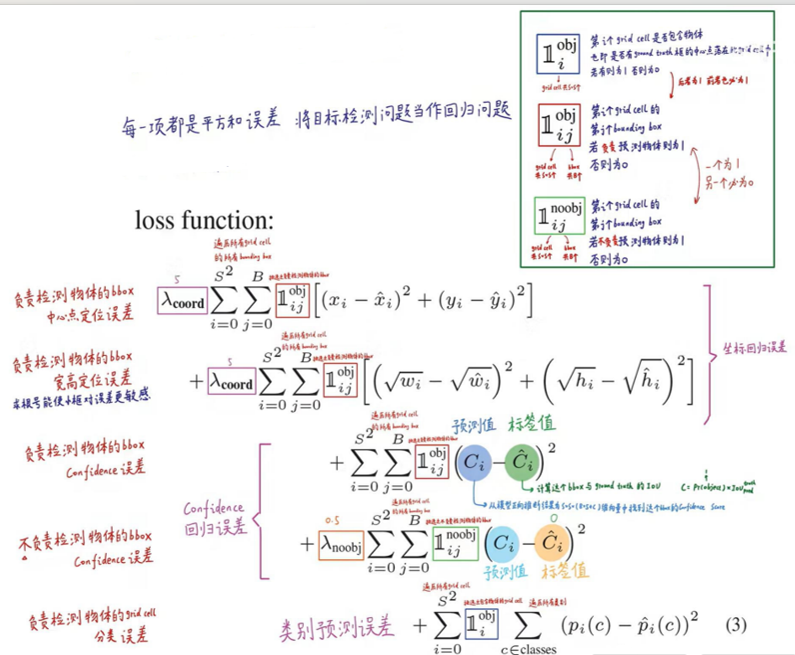 每一项都是平方和误差 将目标检测问题当作回归问题
𝟙_i^obj
第i个grid cell是否包含物体
也即是否有ground truth框的中心点落在此grid cell中
若有则为1 否则为0
grid cell 共S×S个
后者为1 前者也必为1
𝟙_ij^obj
第i个grid cell的
第j个bounding box
若负责预测物体则为1
否则为0
grid cell 共S×S个
bbox 共B个
一个为1
另一个必为0
𝟙_ij^noobj
第i个grid cell的
第j个bounding box
若不负责预测物体则为1
否则为0
grid cell 共S×S个
bbox 共B个
loss function:
遍历所有grid cell
的所有bounding box
负责检测物体的bbox
中心点定位误差
5
λ_coord ∑_{i=0}^{S^2} ∑_{j=0}^{B} 𝟙_ij^obj [(x_i − x̂_i)^2 + (y_i − ŷ_i)^2]
遍历所有grid cell
的所有bounding box
负责检测物体的bbox
宽高定位误差
求根号能使小框对误差更敏感
5
+ λ_coord ∑_{i=0}^{S^2} ∑_{j=0}^{B} 𝟙_ij^obj [(√w_i − √ŵ_i)^2 + (√h_i − √ĥ_i)^2]
坐标回归误差
遍历所有grid cell
的所有bounding box
预测值 标签值
负责检测物体的bbox
Confidence误差
+ ∑_{i=0}^{S^2} ∑_{j=0}^{B} 𝟙_ij^obj (C_i − Ĉ_i)^2
计算这个bbox与ground truth的IOU
C = Pr(object) * IOU^truth_pred
1
从模型正向推断结果为S*S*(B*5+C)维向量中找到这个bbox的Confidence Score
Confidence
回归误差
遍历所有grid cell
的所有bounding box
不负责检测物体的bbox
Confidence误差
0.5
0
+ λ_noobj ∑_{i=0}^{S^2} ∑_{j=0}^{B} 𝟙_ij^noobj (C_i − Ĉ_i)^2
预测值 标签值
遍历所有grid cell
遍历所有类别
负责检测物体的grid cell
分类误差
类别预测误差
+ ∑_{i=0}^{S^2} 𝟙_i^obj ∑_{c∈classes} (p_i(c) − p̂_i(c))^2 (3)